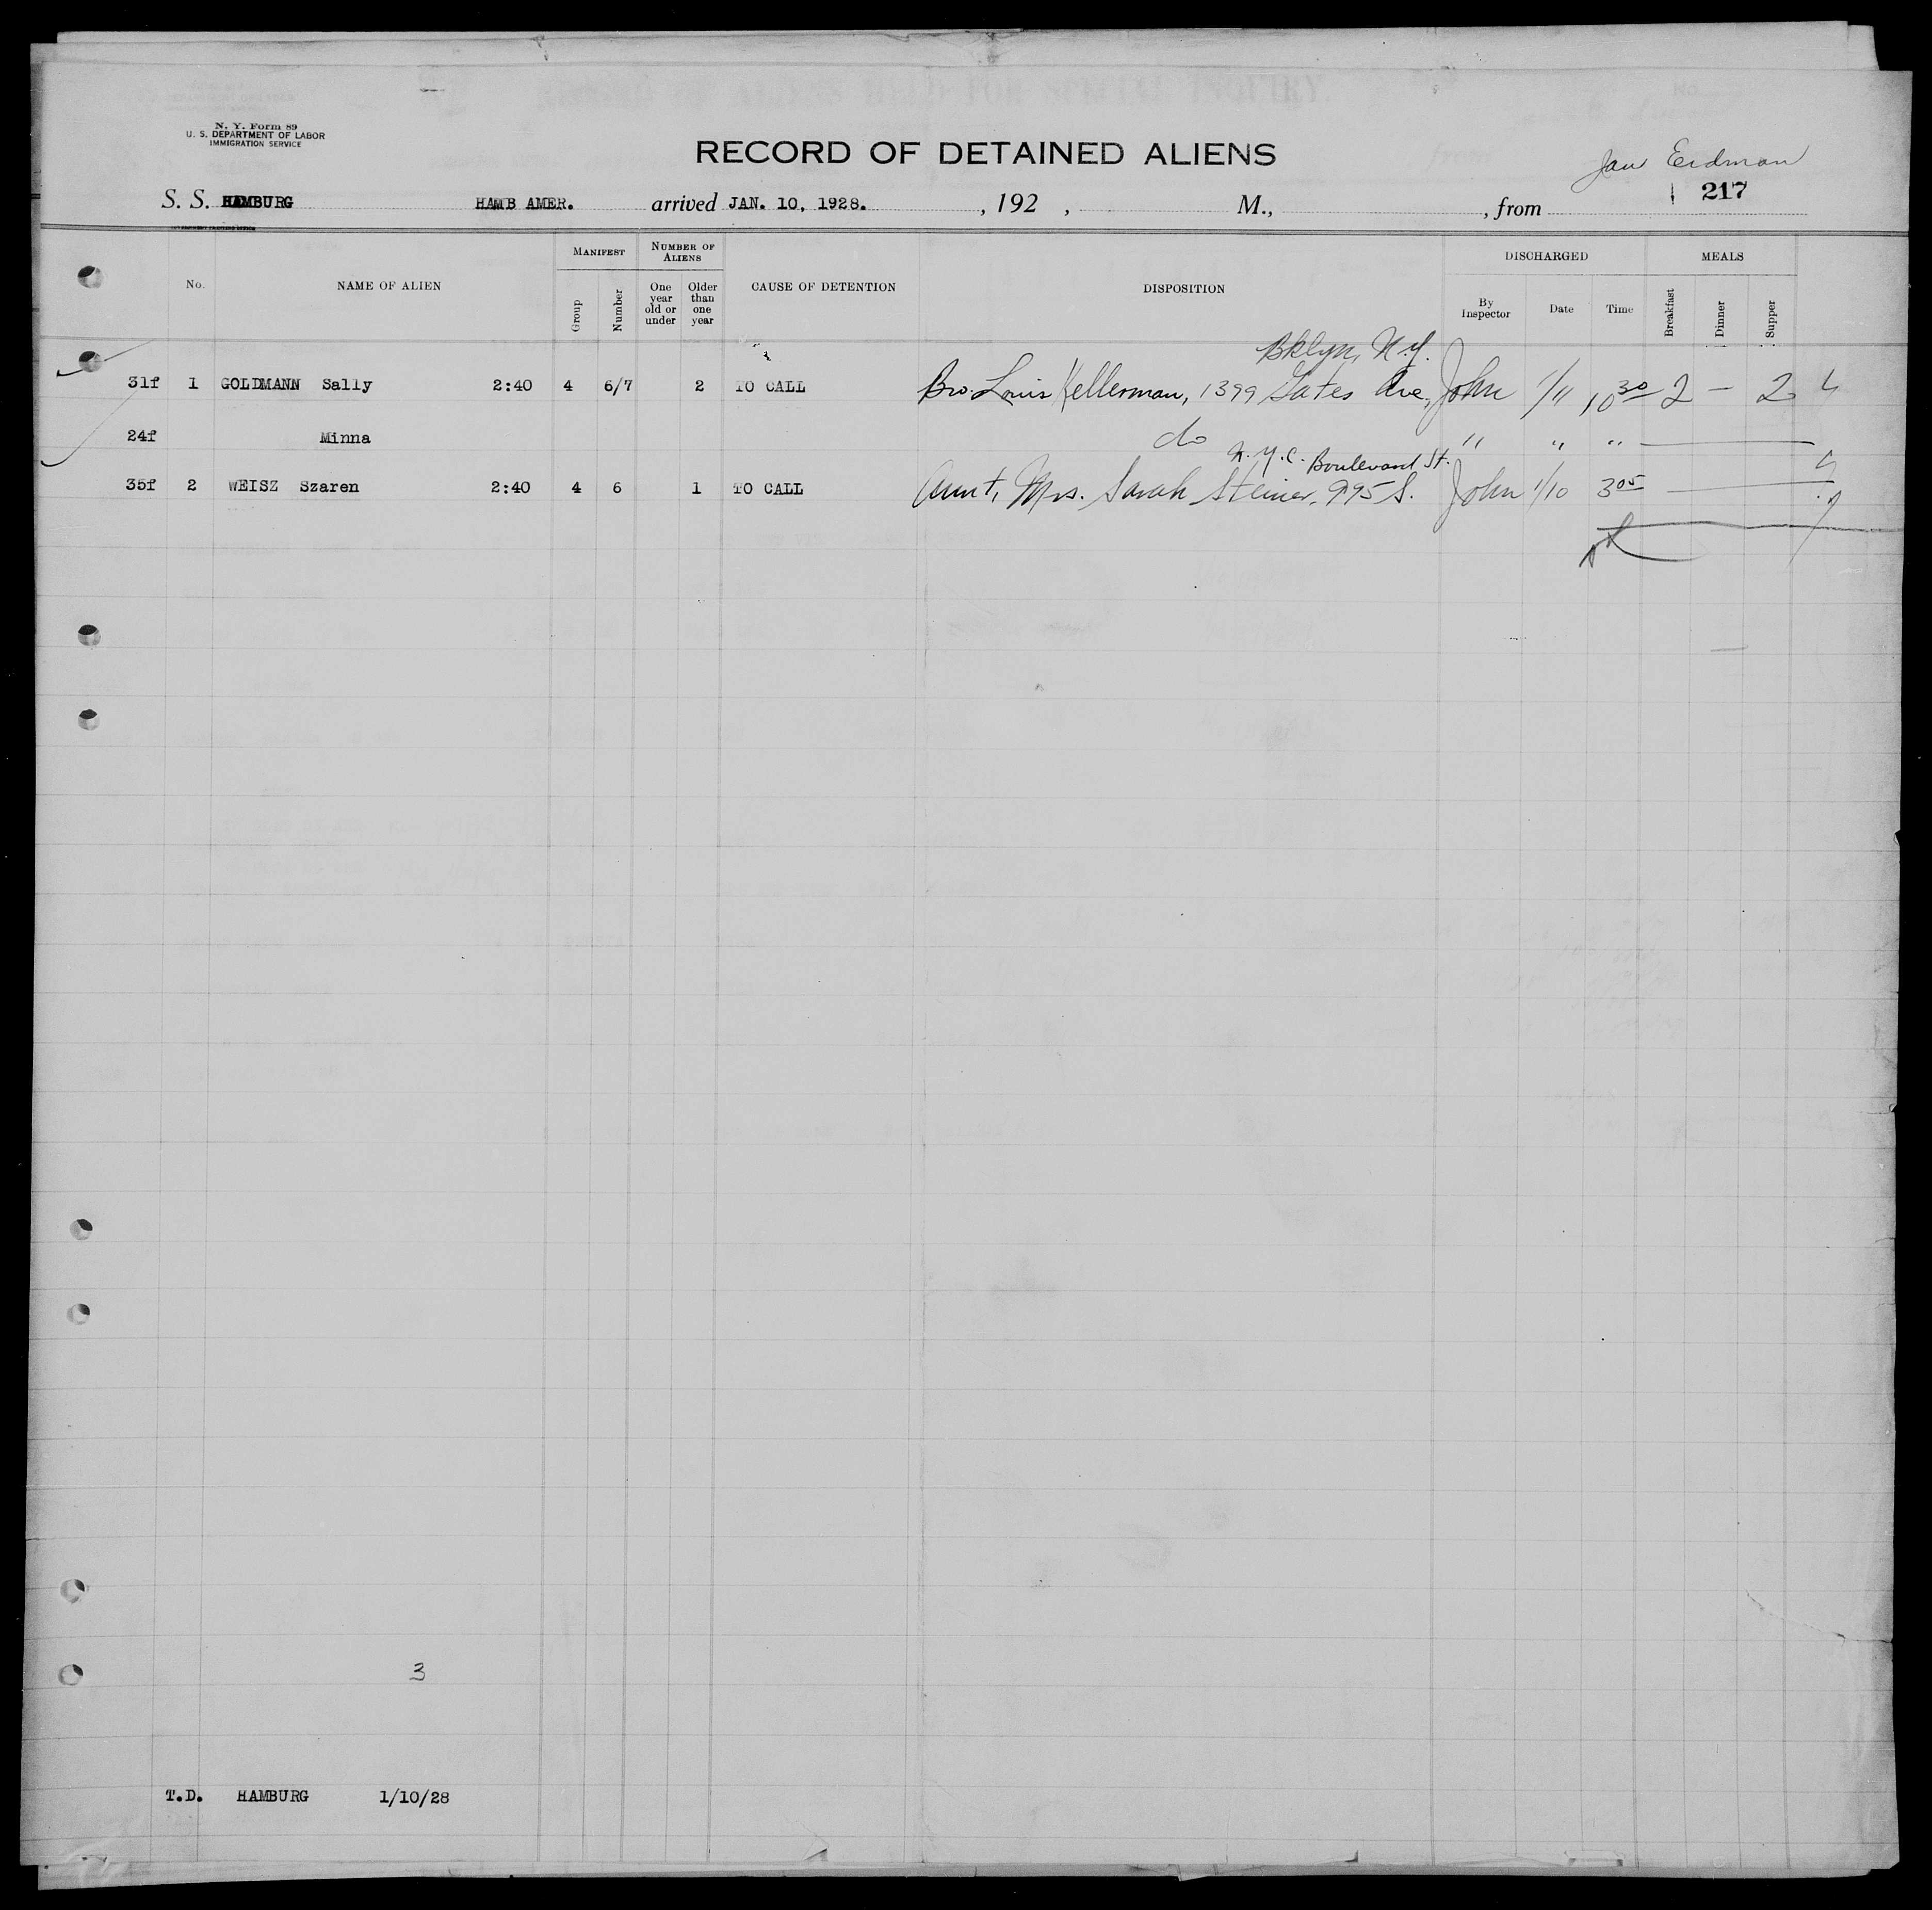 N. Y. Form 89
U. S. DEPARTMENT OF LABOR
IMMIGRATION SERVICE
RECORD OF DETAINED ALIENS
Erdman
S. S. HAMBURG HAMB AMER. arrived JAN. 10, 1928. , 192 , M., , from 217
No.
NAME OF ALIEN
MANIFEST
Group
Number
NUMBER OF ALIENS
One year old or under
Older than one year
CAUSE OF DETENTION
DISPOSITION
DISCHARGED
By Inspector
Date
Time
MEALS
Breakfast
Dinner
Supper
Bklyn, N.Y.
31f 1 GOLDMANN Sally 2:40 4 6/7 2 TO CALL Bro. Louis Kellerman, 1399 Gates Ave, John 1/11 10 30 2 — 2 4
24f Minna do " " "
N.Y.C. Boulevard St.
35f 2 WEISZ Szaren 2:40 4 6 1 TO CALL Aunt, Mrs. Sarah Steiner, 995 S. John 1/10 3 05
3
T.D. HAMBURG 1/10/28